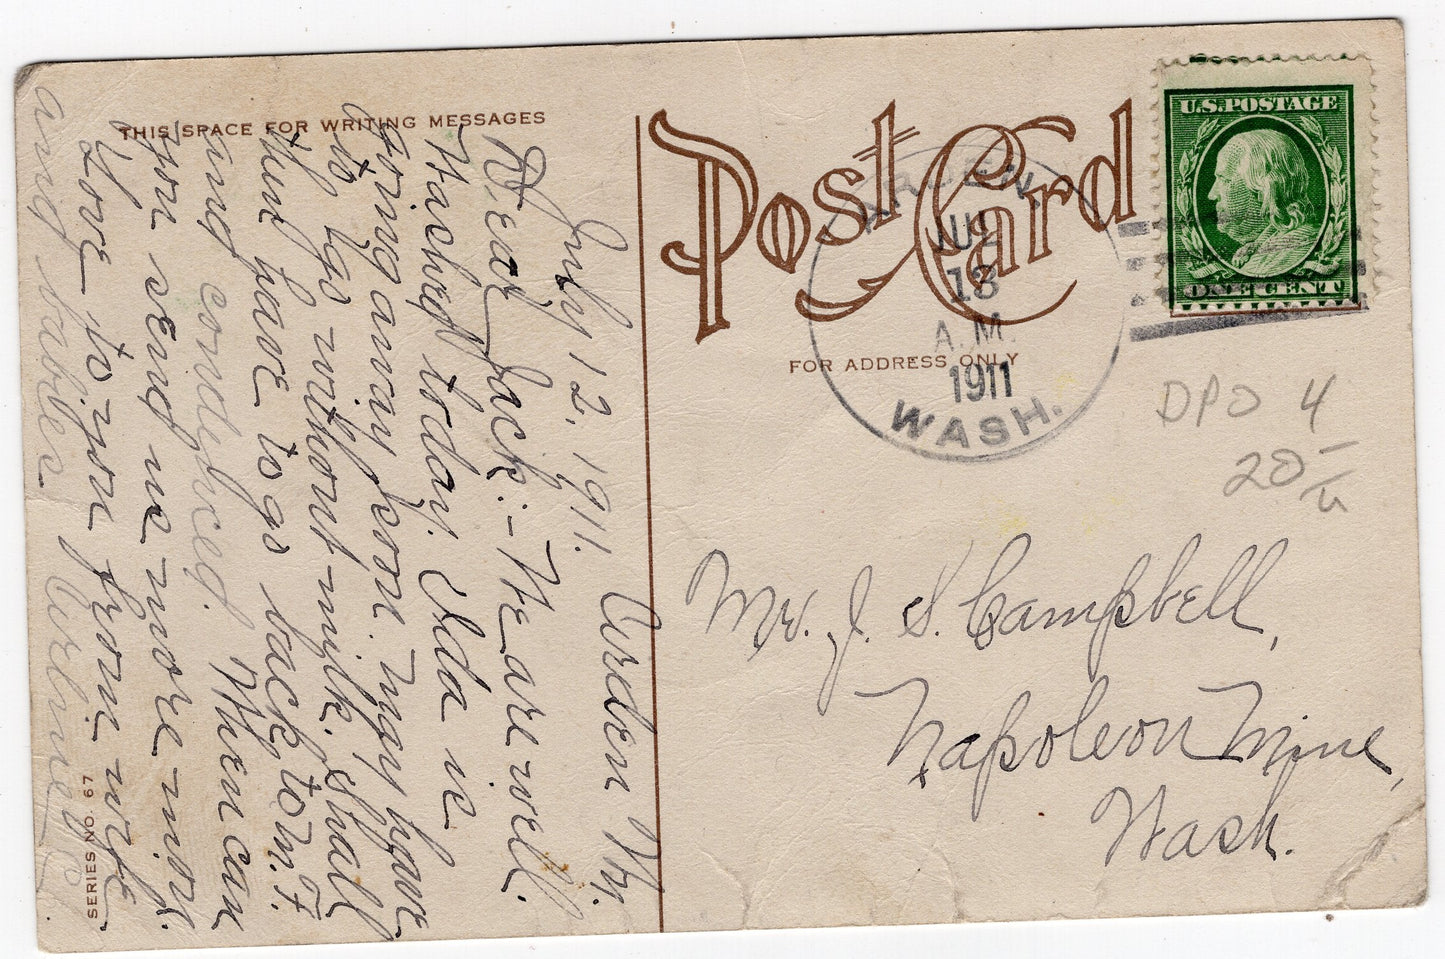 THIS SPACE FOR WRITING MESSAGES
Post Card
FOR ADDRESS ONLY
U.S. POSTAGE
ONE CENT
ARDEN.
JUL
13
A.M.
1911
WASH.
DPO 4
20
Mr. J. S. Campbell,
Napoleon Mine,
Wash.
Arden Wn.
July 12, 1911.
Dear Jack:- We are well.
Washed today. Ida is
going away soon. May have
to go without milk. Shall
then have to go back to M. F.
and condensed. When can
you send me more mon.
Love to you from wife
and babies
SERIES NO. 67